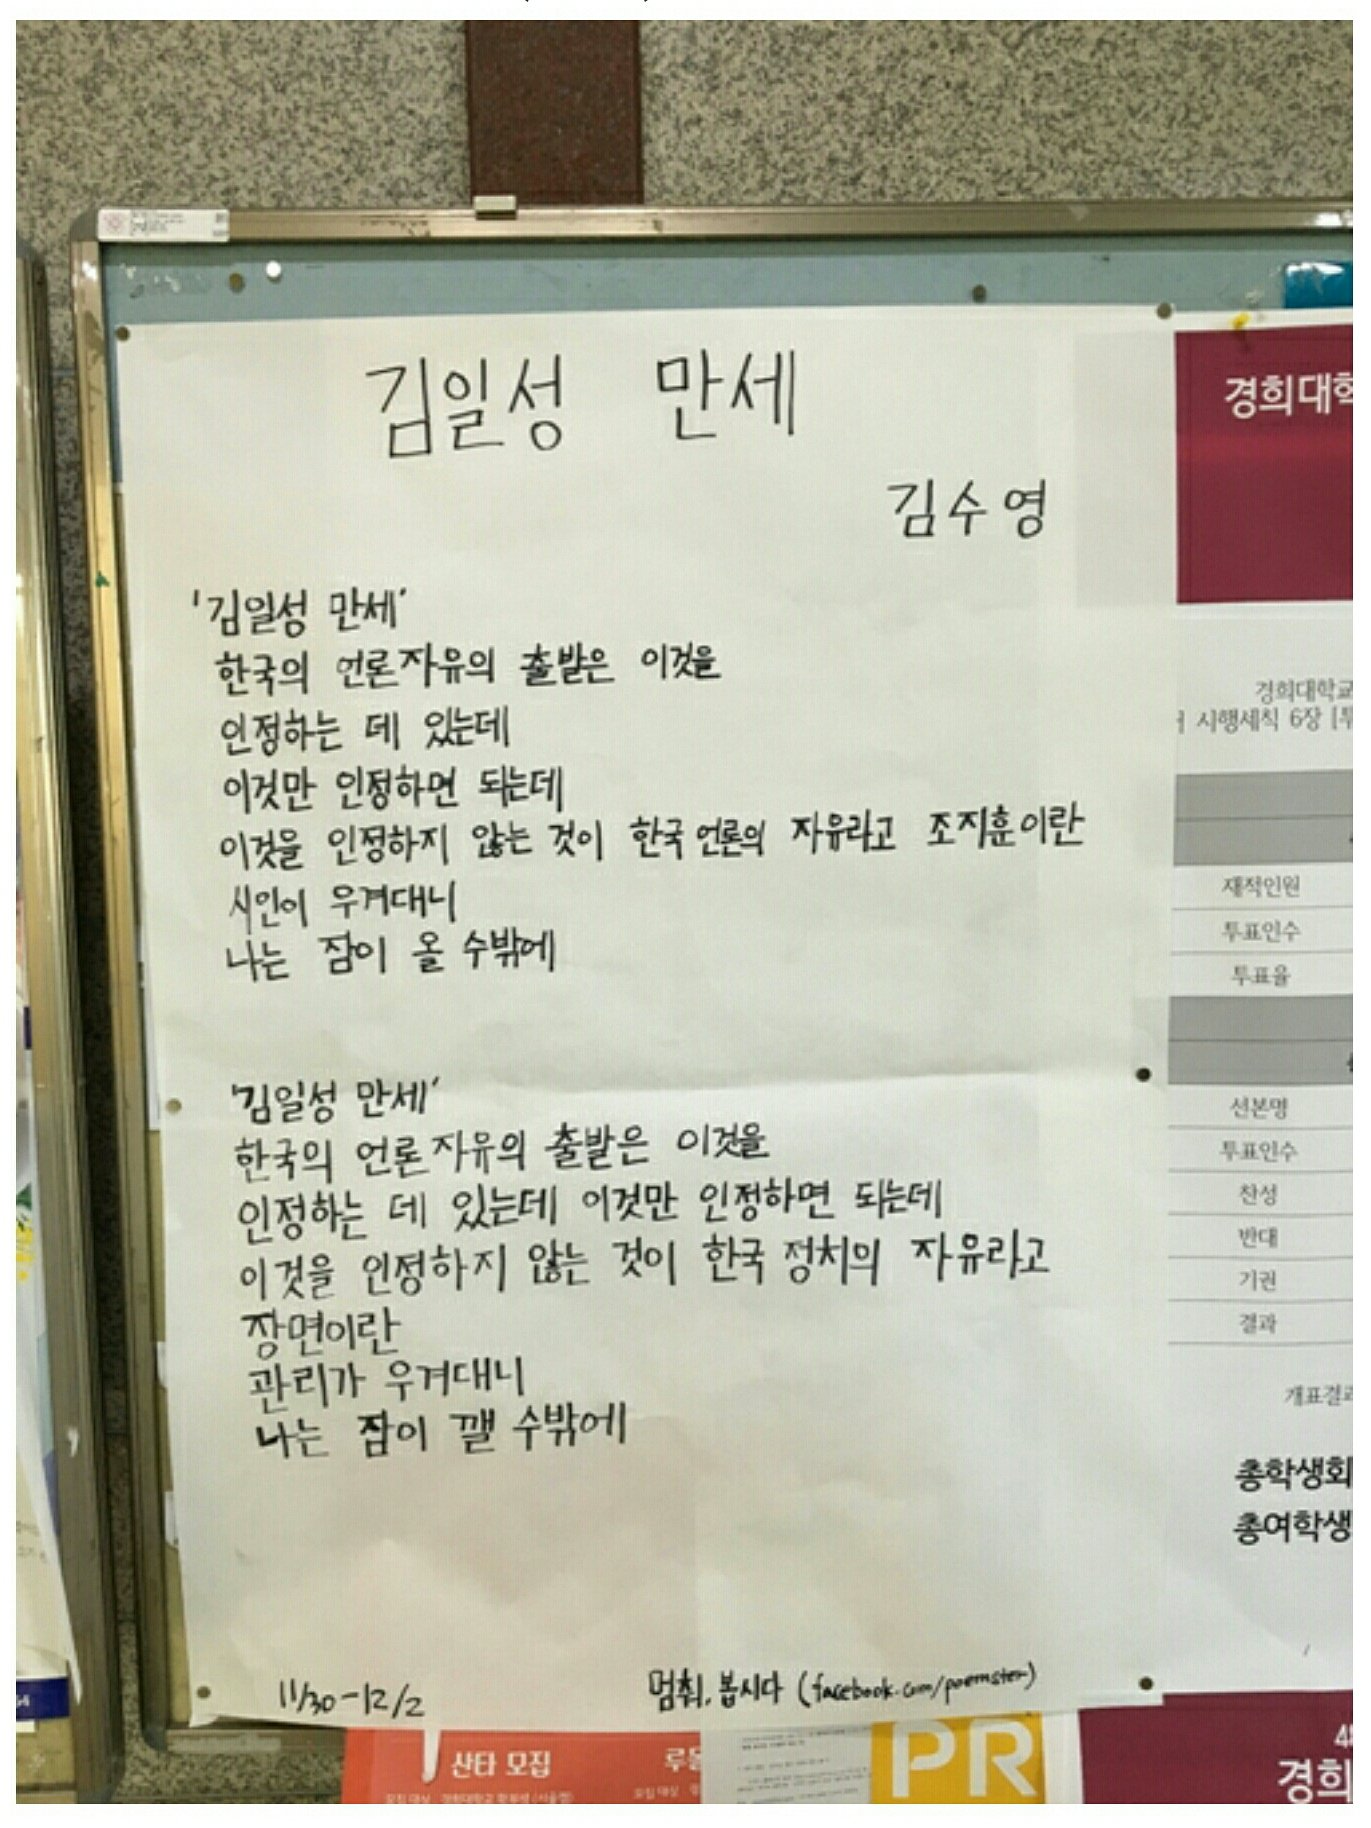 김일성 만세
김수영
'김일성 만세'
한국의 언론자유의 출발은 이것을
인정하는 데 있는데
이것만 인정하면 되는데
이것을 인정하지 않는 것이 한국 언론의 자유라고 조지훈이란
시인이 우겨대니
나는 잠이 올 수밖에
'김일성 만세'
한국의 언론자유의 출발은 이것을
인정하는 데 있는데 이것만 인정하면 되는데
이것을 인정하지 않는 것이 한국 정치의 자유라고
장면이란
관리가 우겨대니
나는 잠이 깰 수밖에
11/30-12/2
멈춰, 봅시다 (facebook.com/poemster)
경희대학
경희대학교
시행세칙 6장 [투
재적인원
투표인수
투표율
선본명
투표인수
찬성
반대
기권
결과
개표결과
총학생회
총여학생
산타 모집
모집 대상 : 경희대학교 학부생 (서울캠)
루돌
모집 대상 :
PR
48
경희